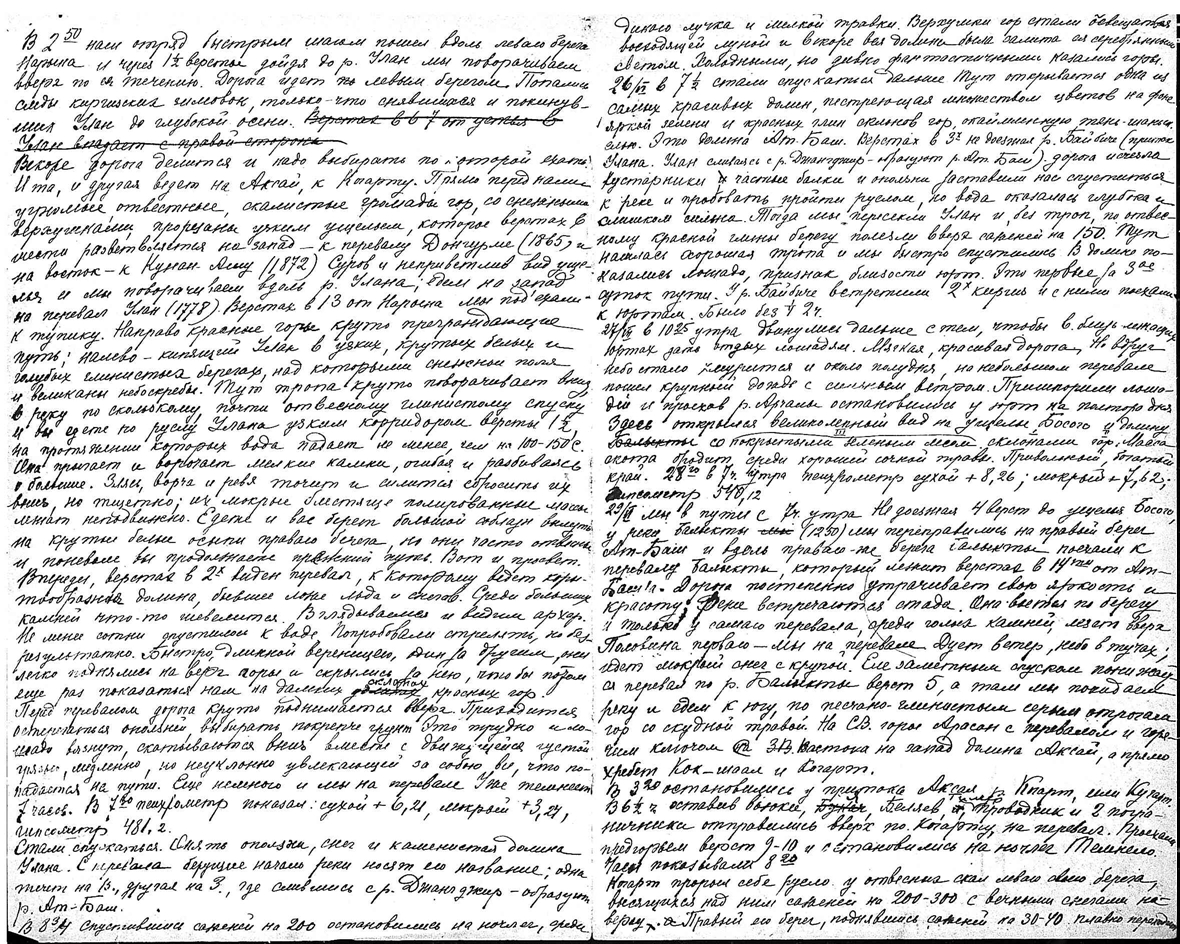 В 2⁵⁰ наш отряд быстрым шагом пошел вдоль левого берега
Нарына и через 1½ версты дойдя до р. Улан мы поворачиваем
вверх по ея течению. Дорога идет по левым берегом. Попались
следы киргизских зимовок, только-что снявшихся и покинув-
ших Улан до глубокой осени. Верстах в 6-7 от устья в
Улан впадает с правой стороны
Вскоре дорога делится и надо выбирать по которой ехать.
И та, и другая ведет на Аксай, к Кагарту. Прямо перед нами
угрюмые, отвестные, скалистые громады гор, со снежными
верхушками прорезаны узким ущельем, которое верстах в
шести разветвляется на запад – к перевалу Донгурме (1865) и
на восток – к Кунан Ашу (1872) Суров и неприветлив вид уще-
лья и мы поворачиваем вдоль р. Улана; едем на запад
на перевал Улан (1778). Верстах в 13 от Нарына мы подъехали
к тупику. Направо красные горы круто преграждающие
путь; налево – кипящий Улан в узких, крутых белых и
голубых глинистых берегах, над которыми снежные поля
и великаны небоскребы. Тут тропа круто поворачивает вниз
в реку по скользкому, почти отвесному глинистому спуску
и вы едете по руслу Улана узким корридором версты 1½,
на протяжении которых вода падает не менее, чем на 100-150 с.
Она прыгает и ворочает мелкие камни, огибая и разбиваясь
о большие. Злясь, ворча и ревя точит и силится сбросить их
вниз, но тщетно; их мокрые блестяще полированные массы
лежат неподвижно. Едете и вас берет большой соблазн
на крутые белые осыпи правого берега, но они часто отвесны
и поневоле вы продолжаете прежний путь. Вот и просвет.
Впереди, верстах в 2ˣ виден перевал, к которому ведет коры-
тообразная долина, бывшее ложе льда и снегов. Среди больших
камней что-то шевелится. Вглядываемся и видим архар.
Не менее сотни спустилось к воде. Попробовали стрелять, но без
результатно. Быстро длинной вереницею, один за другим, они
легко поднялись на верх горы и скрылись за нею, чтобы потом
еще раз показаться нам на далеких склонах красных гор.
Перед перевалом дорога круто поднимается вверх. Приходится
остерегаться оползней, выбирать покрепче грунт. Это трудно и ло-
шади вязнут, скатываются вниз вместе с движущейся густой
грязью, медленно, но неуклонно увлекающей за собою все, что по-
падается на пути. Еще немного и мы на перевале. Уже темнеет.
7 часов. В 7²⁰ психрометр показал: сухой + 6,21, мокрый + 3,21,
гипсометр 481,2.
Стали спускаться. Опять оползни, снег и каменистая долина
Улана. С перевала берущие начало реки носят его название; одна
течет на В., другая на З., где слившись с р. Джангджир – образует
р. Ат-Баш.
В 8³⁄₄ спустившись саженей на 200 остановились на ночлег, среди
дикого лучка и мелкой травки. Верхушки гор стали освещаться
восходящей луной и вскоре вся долина была залита ея серебрянным
светом. Холодными, но дивно фантастичными казались горы.
26/VI в 7½ стали спускаться дальше. Тут открывается одна из
самых красивых долин, пестреющая множеством цветов на фоне
яркой зелени и красных глин склонов гор, окаймленную тянь-шанск.
елью. Это долина Ат-Баш. Верстах в 3ˣ не доезжая р. Байбиче (приток
Улана. Улан сливаясь с р. Джангджир – образует р. Ат Баш) дорога исчезла
кустарники и частые балки и оползни заставили нас спуститься
к реке и пробовать пройти руслом, но вода оказалась глубока и
слишком сильна. Тогда мы пересекли Улан и без троп, по отвес-
ному красной глины берегу полезли вверх саженей на 150. Тут
нашлась хорошая тропа и мы быстро спустились. В долине по-
казались лошади, признак близости юрт. Это первые за 3ое
суток пути. У р. Байбиче встретили 2ˣ киргиз и с ними поехали
к юртам. Было без ¼ 2ч.
27/VI в 10²⁵ утра двинулись дальше с тем, чтобы в близь лежащих
юртах дать отдых лошадям. Мягкая, красивая дорога. Но вдруг
небо стало хмуриться и около полудня, на небольшом перевале
пошел крупный дождь с сильным ветром. Пришпорили лоша-
дей и проехав р. остановились у юрт на полтора дня.
Здесь открылся великолепный вид на ущелье Босого и долину
Балыкты со покрытыми зеленым лесом склонами гор. Масса
скота бродит среди хорошей сочной травы. Привольный, богатый
край. 28го в 7ч. утра психрометр сухой + 8,26; мокрый + 7,62;
гипсометр 548,12
29/VI мы в пути с 7ч. утра. Не доезжая 4 верст до ущелья Босого,
у реки Балыкты (1250) мы переправились на правый берег
Ат-Баш и вдоль правого-же берега Балыкты поехали к
перевалу Балыкты, который лежит верстах в 14ти от Ат-
Баша. Дорога постепенно утрачивает свою яркость и
красоту. Реже встречаются стада. Она вьется по берегу
и только у самого перевала, среди голых камней, лезет вверх
Половина первого – мы на перевале. Дует ветер, небо в тучах;
идет мокрый снег с крупой. Еле заметным спуском понижает-
ся перевал по р. Балыкты верст 5, а там мы покидаем
реку и едем к югу, по песчано-глинистым серым отрогам
гор со скудной травой. На С.В. горы Арасан с перевалом и горя-
чим ключом с востока на запад долина Аксай, а прямо
хребет Кок-шаал и Кагарт.
В 3²⁰ остановились у притока Аксая р. Кпарт, или Кугарт.
В 6½ ч оставив вьюки, Беляев, я, проводник и 2 погра-
ничника отправились вверх по Кагарту, на перевал. Проехали
предгорьем верст 9-10 и остановились на ночлег. Темнело.
Часы показывали 8²⁰
Кпарт прорыл себе русло у отвесных скал левого своего берега,
высящихся над ним саженей на 200-300 с вечными снегами на-
верху. а Правый его берег, поднявшись саженей на 30-40 плавно